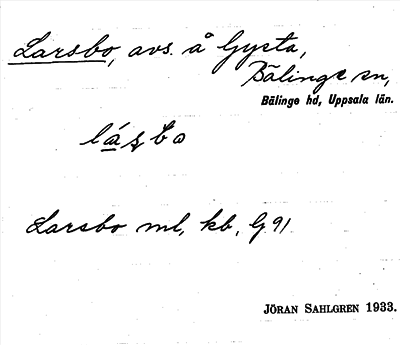 Larsbo, avs. å Gysta,
Bälinge sn,
Bälinge hd, Uppsala län.
lásbo
Larsbo ml, kb, G. 91
JÖRAN SAHLGREN 1933.